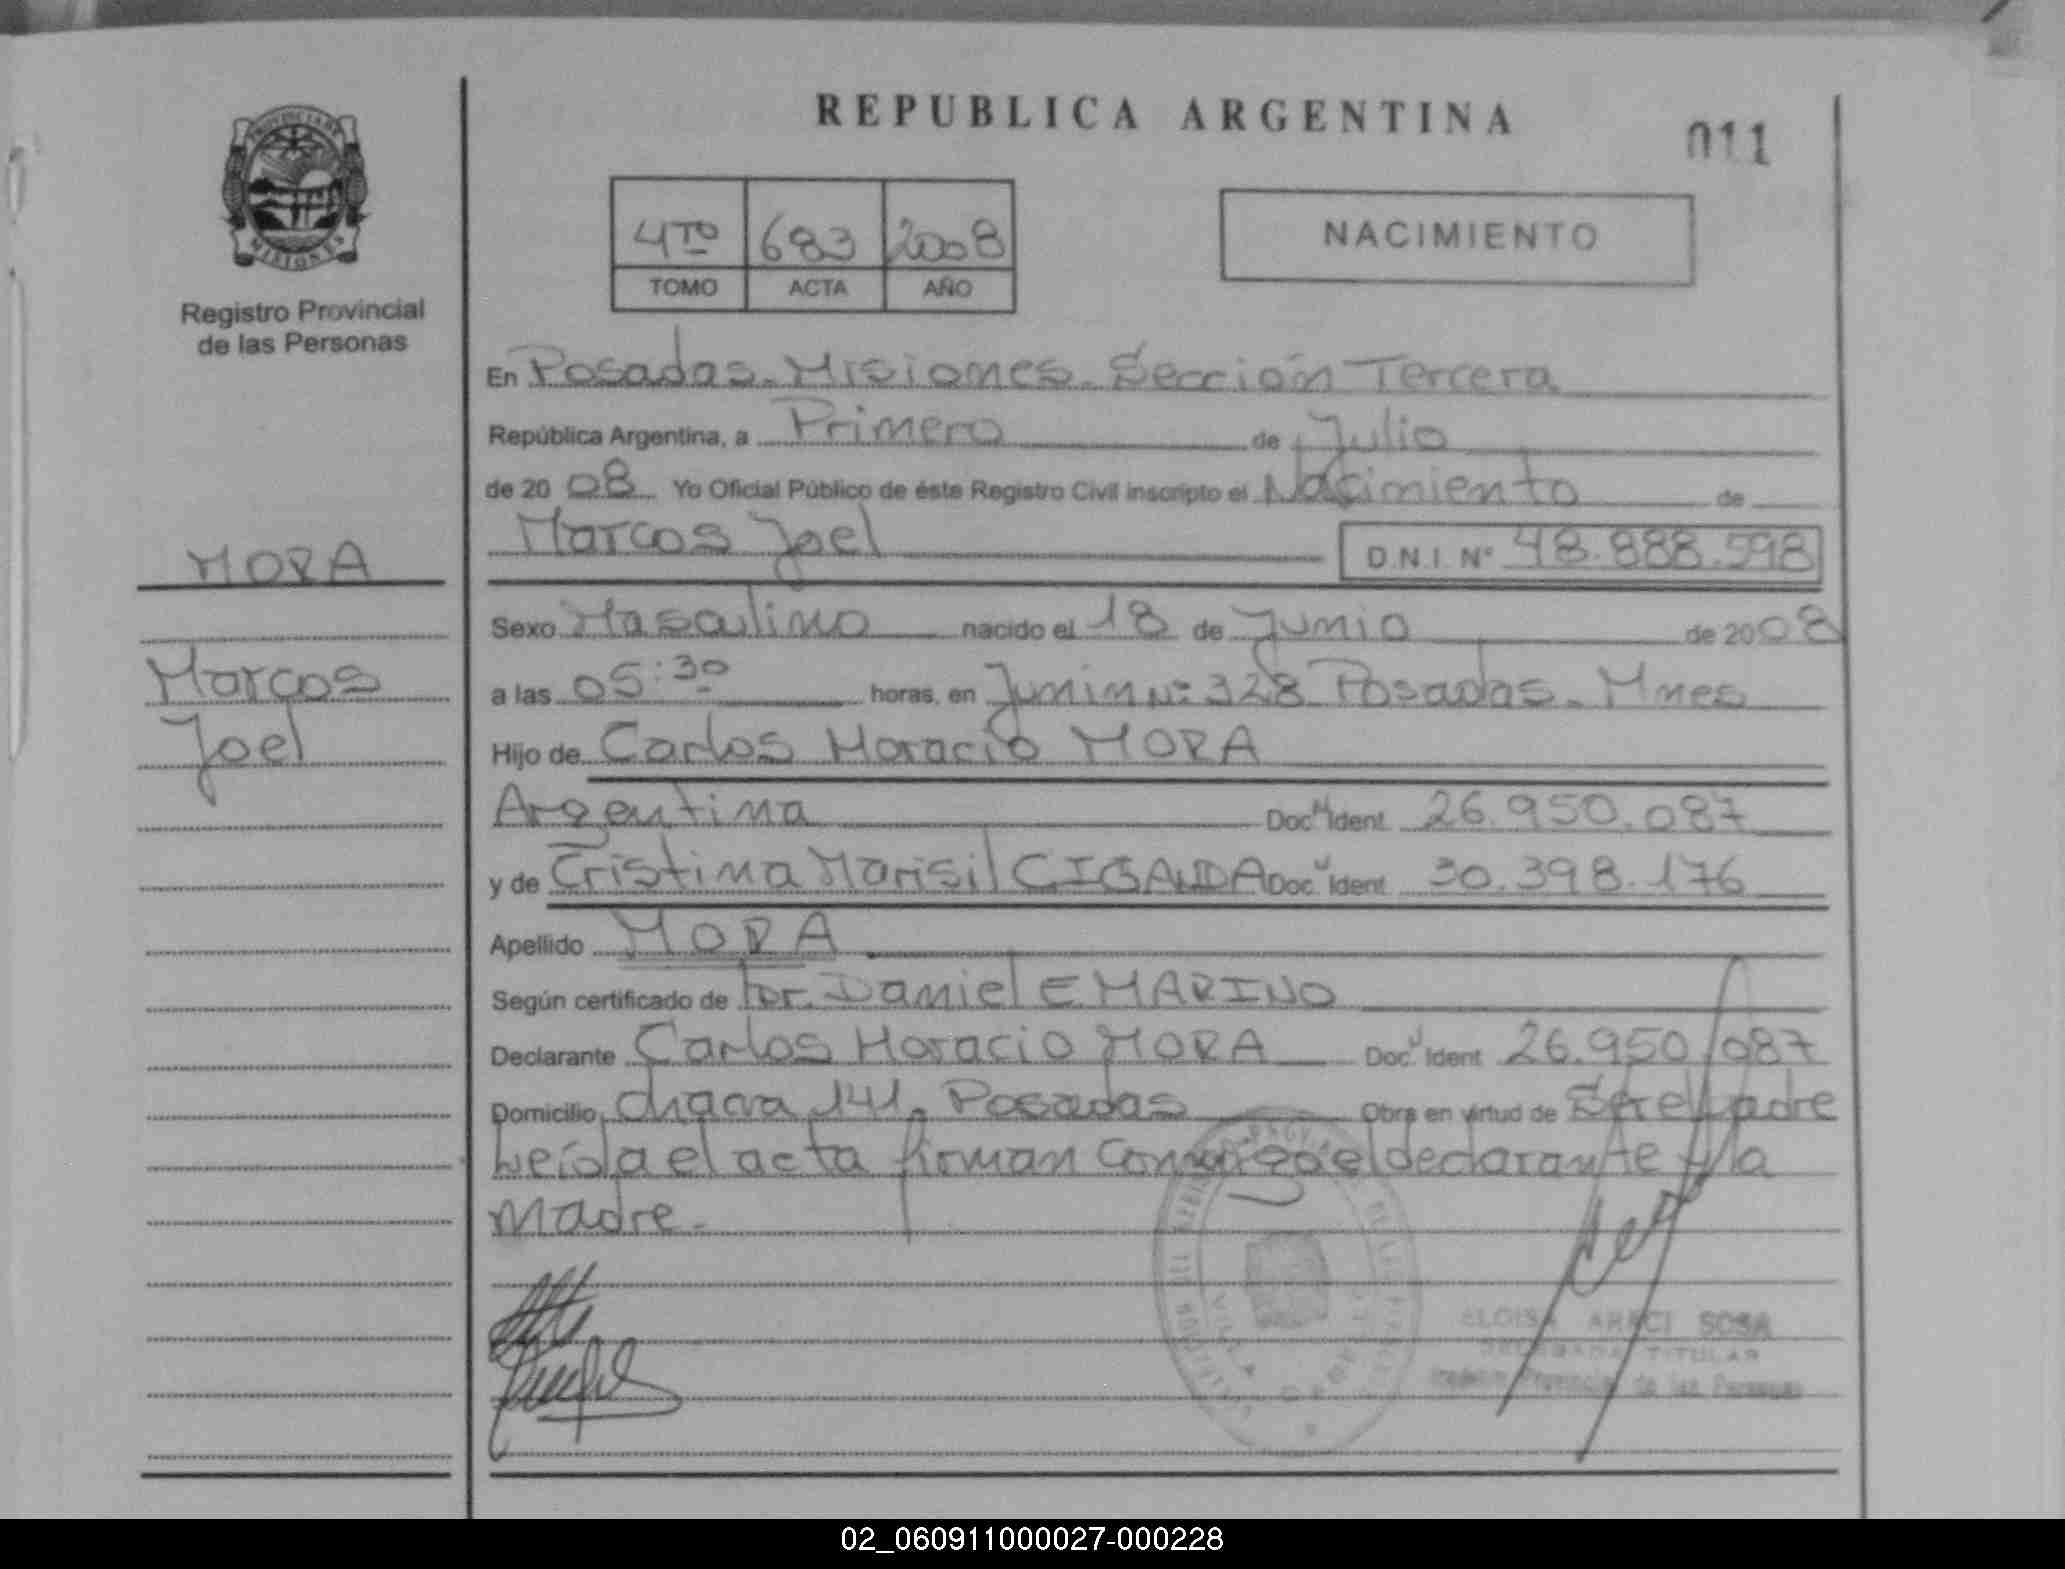 REPUBLICA ARGENTINA
011
PROVINCIA DE
MISIONES
Registro Provincial
de las Personas
4TO 683 2008
TOMO ACTA AÑO
NACIMIENTO
En Posadas - Misiones - Sección Tercera
República Argentina, a Primero de Julio
de 20 08 Yo Oficial Público de éste Registro Civil inscripto el Nacimiento de
Marcos Joel D.N.I. N° 48.888.598
MORA
Marcos
Joel
Sexo Masculino nacido el 18 de Junio de 2008
a las 05:30 horas, en Junin N: 328 Posadas - Mnes
Hijo de Carlos Horacio MORA
Argentina Doc. Ident 26.950.087
y de Cristina Marisil CIGANDA Doc. Ident 30.398.176
Apellido MORA
Según certificado de Dr. Daniel E MARINO
Declarante Carlos Horacio MORA Doc. Ident 26.950.087
Domicilio chacra 141, Posadas Obra en virtud de Ser el padre
Leída el acta firman conmigo el declarante y la
madre.-
ELOISA ARECI SOSA
DELEGADA TITULAR
Provincial de las Personas
02_060911000027-000228